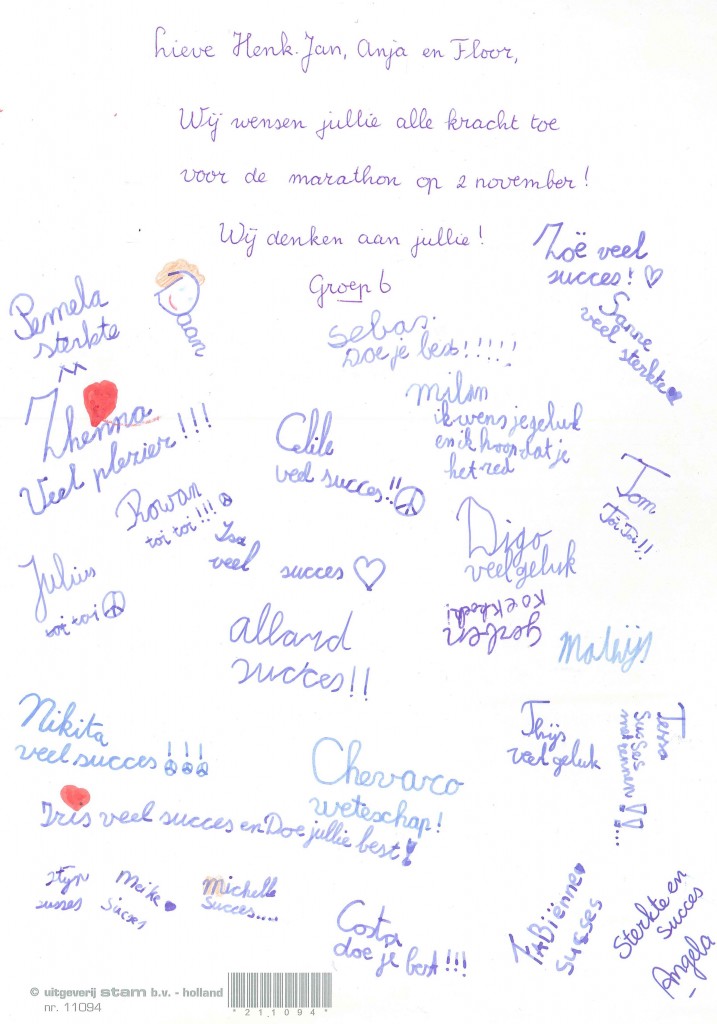 Lieve Henk-Jan, Anja en Floor,
Wij wensen jullie alle kracht toe
voor de marathon op 2 november!
Wij denken aan jullie!
Groep 6
Zoë veel
succes!
Pemela
sterkte
Daan
Sanne
veel sterkte
Sebas.
Doe je best!!!!!
Zhenna
Veel plezier!!!
milan
ik wens je geluk
en ik hoop dat je
het red
veel succes!!
Tom
Toi Toi!!
Rowan
toi toi!!!
Isa
veel succes
Digo
veel geluk
Julius
toi toi
Gerben
allard
succes!!
Mathijs
Nikita
veel succes!!!
Thijs
veel geluk
Tessa
susses
met rennen!!...
Chevaro
weteschap!
Iris veel succes en Doe jullie best!
Stijn
susses
Meike
sucses
Michelle
Succes.....
Costa
doe je best!!!
FABiënne
sucses
Sterkte en
succes
Angela
© uitgeverij stam b.v. - holland
nr. 11094
*21.1094*